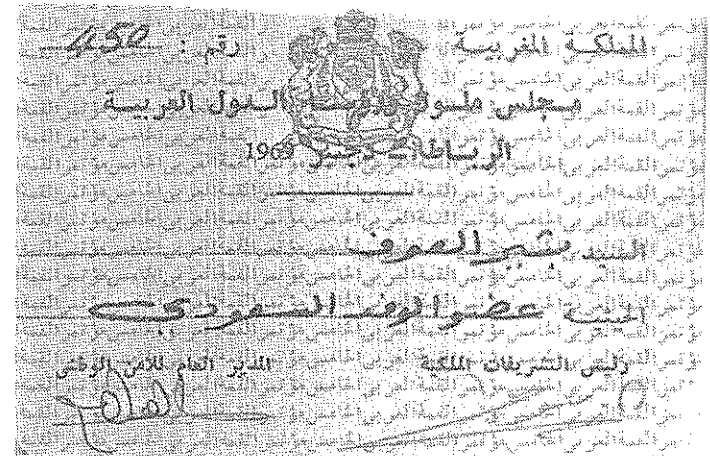 المملكة المغربية رقم : 450
مجلس ملوك ورؤساء الدول العربية
الرباط - دجنبر 1969
السيد بشير الصوف
الجنسية عضو الوفد السعودي
رئيس التشريفات الملكية المدير العام للأمن الوطني